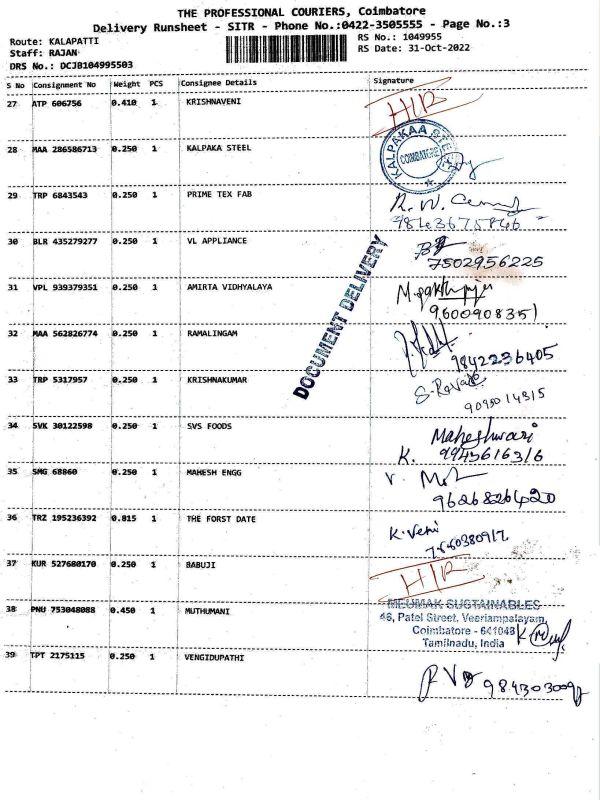 THE PROFESSIONAL COURIERS, Coimbatore
Delivery Runsheet - SITR - Phone No.:0422-3505555 - Page No.:3
Route: KALAPATTI
Staff: RAJAN
DRS No.: DCJB104995503
RS No.: 1049955
RS Date: 31-Oct-2022
S No Consignment No Weight PCS Consignee Details Signature
27 ATP 606756 0.410 1 KRISHNAVENI H/R
28 MAA 286586713 0.250 1 KALPAKA STEEL
KALPAKAA STE
COIMBATORE
29 TRP 6843543 0.250 1 PRIME TEX FAB
30 BLR 435279277 0.250 1 VL APPLIANCE
7502956225
31 VPL 939379351 0.250 1 AMIRTA VIDHYALAYA
9600908351
DOCUMENT DELIVERY
32 MAA 562826774 0.250 1 RAMALINGAM
9842236405
33 TRP 5317957 0.250 1 KRISHNAKUMAR
34 SVK 30122598 0.250 1 SVS FOODS Maheshwari
K. 9943616316
35 SMG 68860 0.250 1 MAHESH ENGG
9626826420
36 TRZ 195236392 0.815 1 THE FORST DATE K. Veni
37 KUR 527680170 0.250 1 BABUJI H/R
38 PNU 753048088 0.450 1 MUTHUMANI
MEUMAK SUSTAINABLES
46, Patel Street, Veeriampalayam,
Coimbatore - 641048
Tamilnadu, India
39 TPT 2175115 0.250 1 VENGIDUPATHI